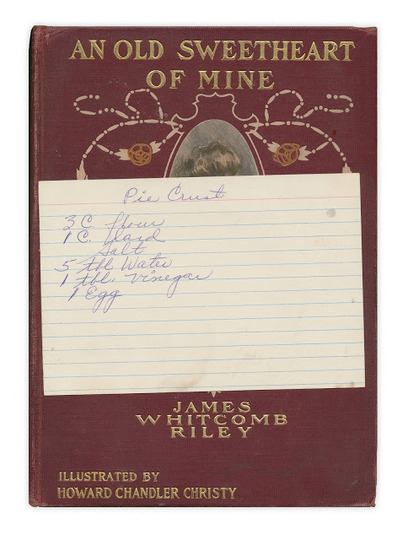 AN OLD SWEETHEART
OF MINE
Pie Crust
3 C. flour
1 C. Lard
Salt
5 tbl Water
1 tbl. Vinegar
1 Egg
JAMES
WHITCOMB
RILEY
ILLUSTRATED BY
HOWARD CHANDLER CHRISTY